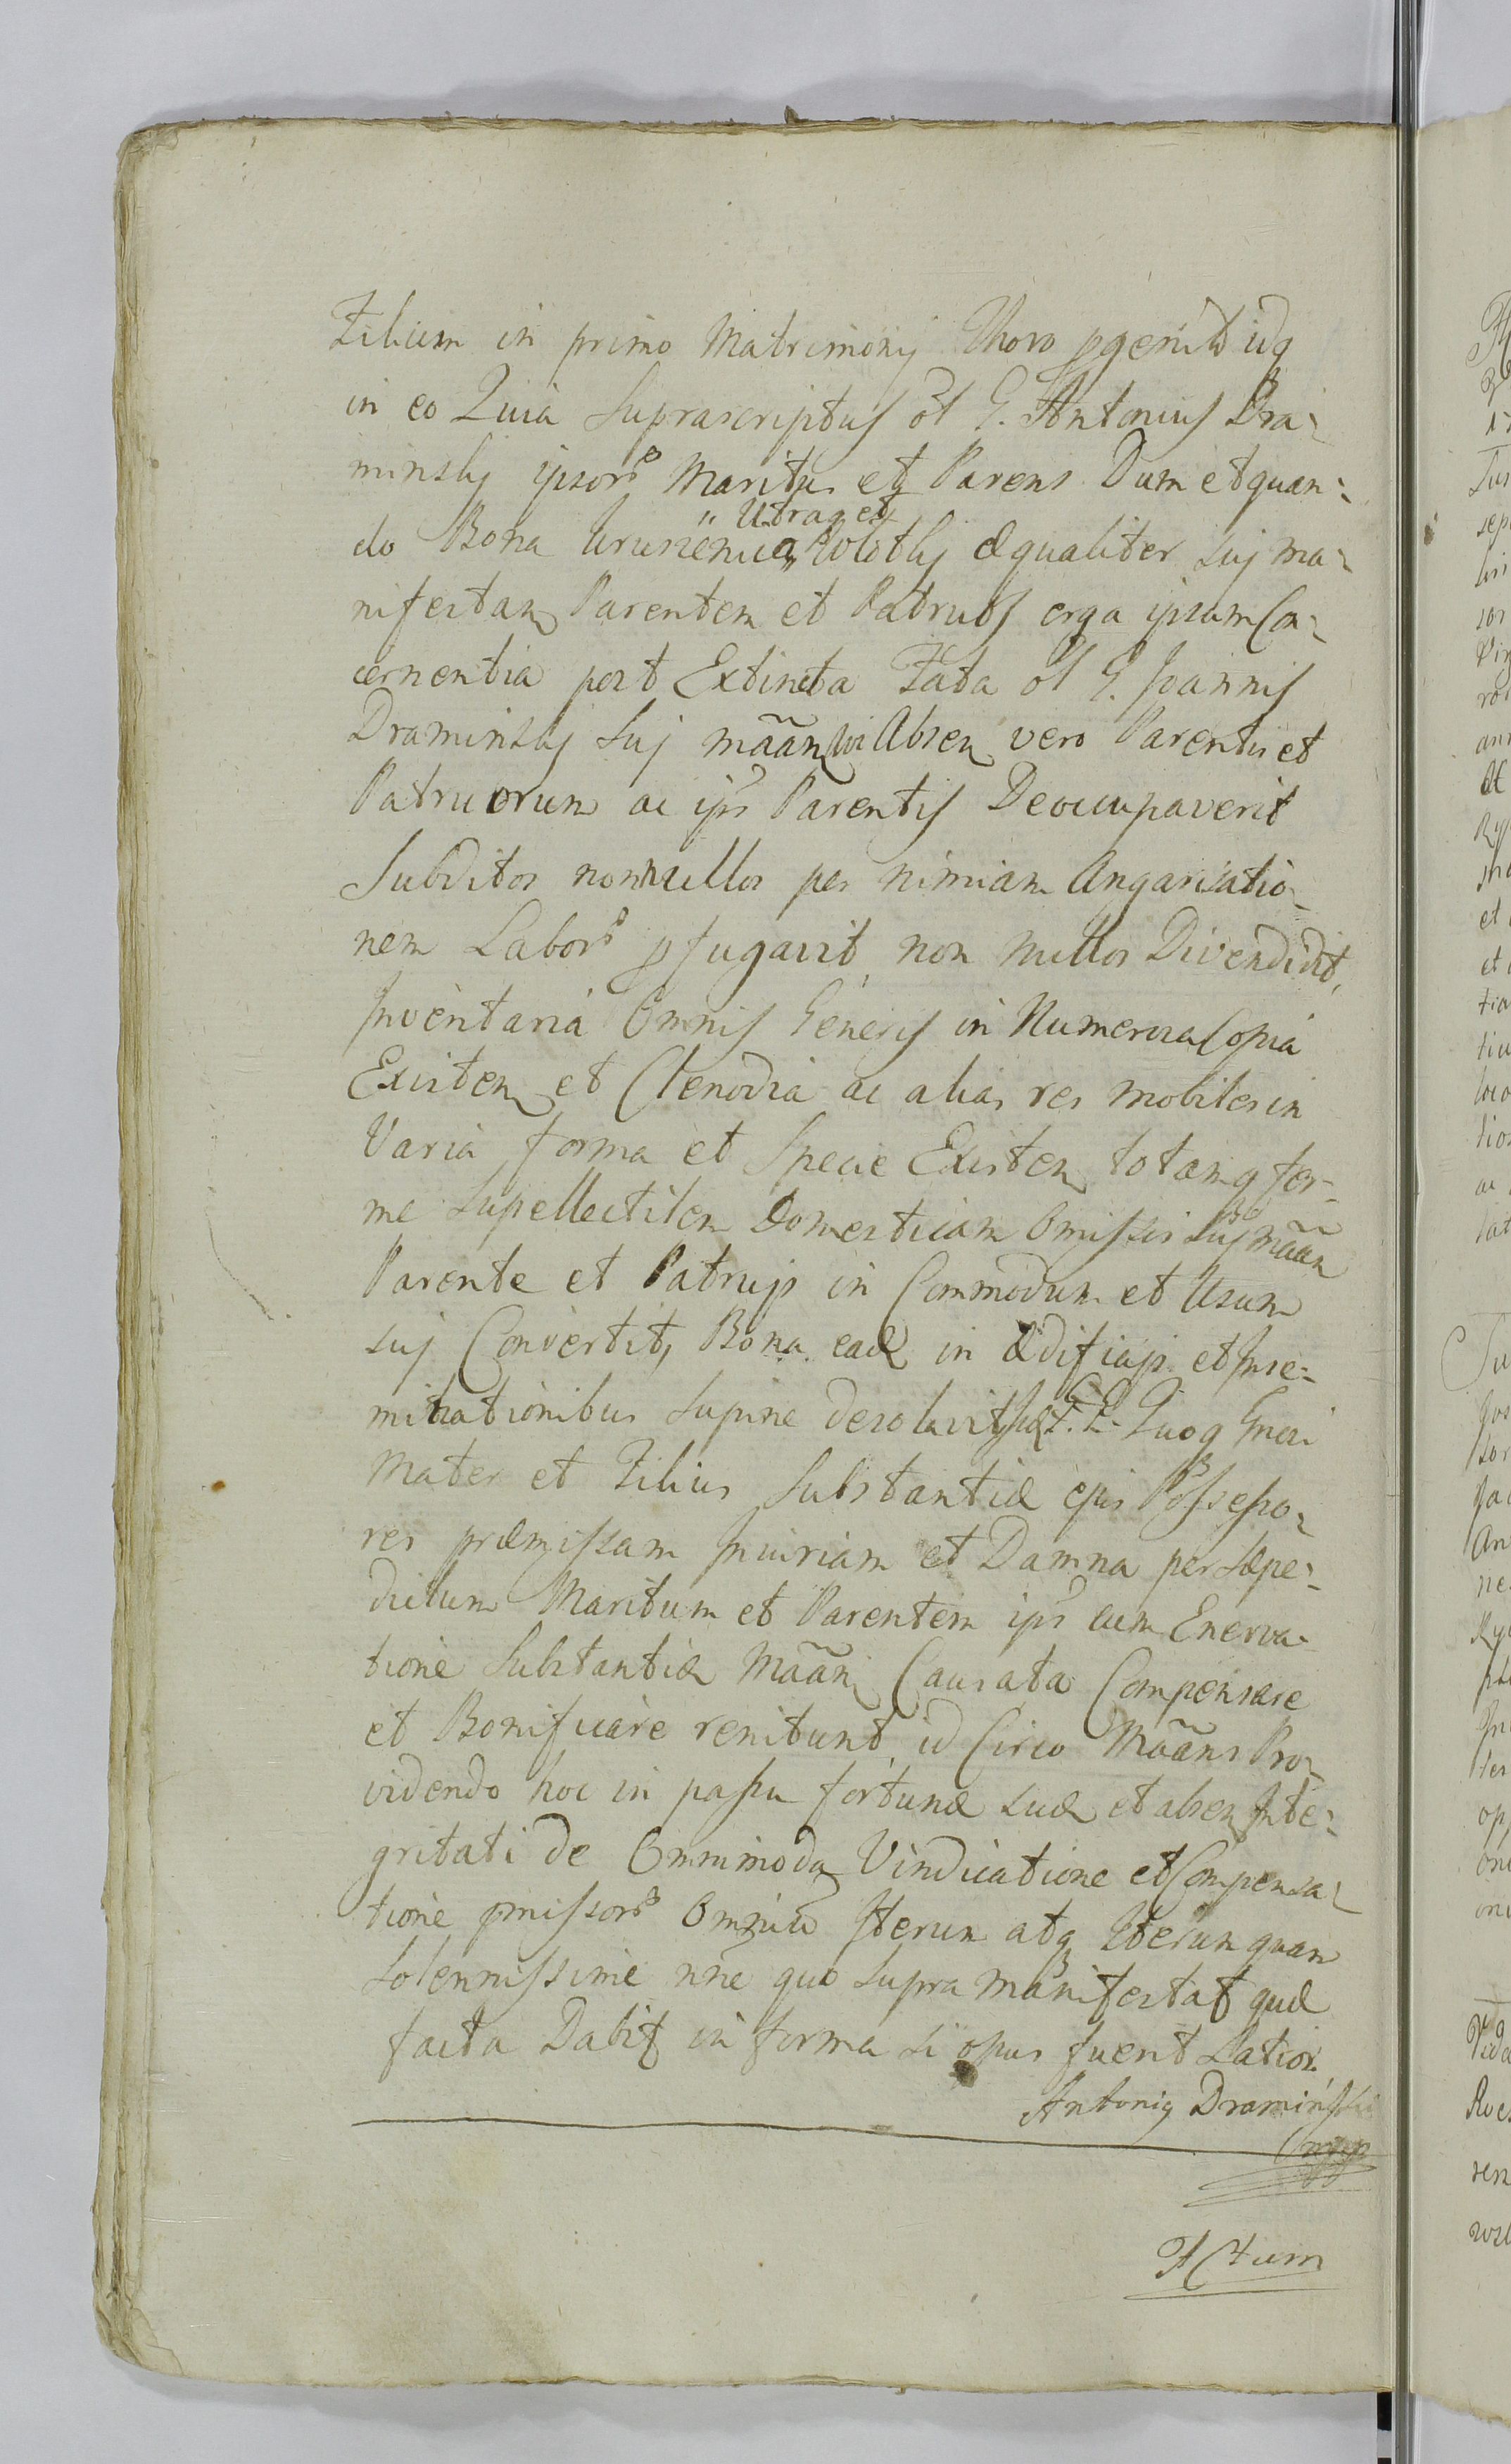 Filium in primo Matrimonij Thoro pgenitũ idq
in eo Quia Suprascriptus ol G. Antonius Dra:
minsky ipsorũ Maritus et Parens Dum et quan:
do Bona Urusienica „ Utraq et „ Wolothy æqualiter suj ma:
nifestam Parentem et Patruos erga ipsum Con:
cernentia post Extincta Fata ol G. Joannis
Draminsky Suj mããn Absen vero Parentis et
Patruorum ac ips Parentis Deoccupaverit
Subditos nonnullos per nimiam Angarisatio:
nem Laborũ pfugavit, non nullos Divendidit,
Inventaria Omnis Generis in Numerosa Copia
Existen et Clenodia ac alias res mobiles in
Varia forma et Specie Existen totamq fer:
me Supellectilem Domesticam Omissis Suj mããn
Parente et Patrujs in Commodum et Usum
suj Convertit, Bona ead in Ædificijs et Inse:
minationibus Supine desolavit, Quoq
Mater et Filius Substantiæ ejus Possesso:
res præmissam Iniuriam et Damna per Sæpe:
dictum Maritum et Parentem ips cum Enerva:
tione Substantiæ Mããn Causata Compensare
et Bonificare renitunt, id Circo Mããns Pro:
videndo hoc in passu fortunæ suæ et absen Inte:
gritati de Omnimoda Vindicatione et Compensa:
tione pmissorũ Omniũ Iterum atq Iterum quam
Solennissime nñe quo supra Manifestat quæ
facta Dabit in forma si opus fuerit Latiori.
Antoni Dramiński
mpp
Actum